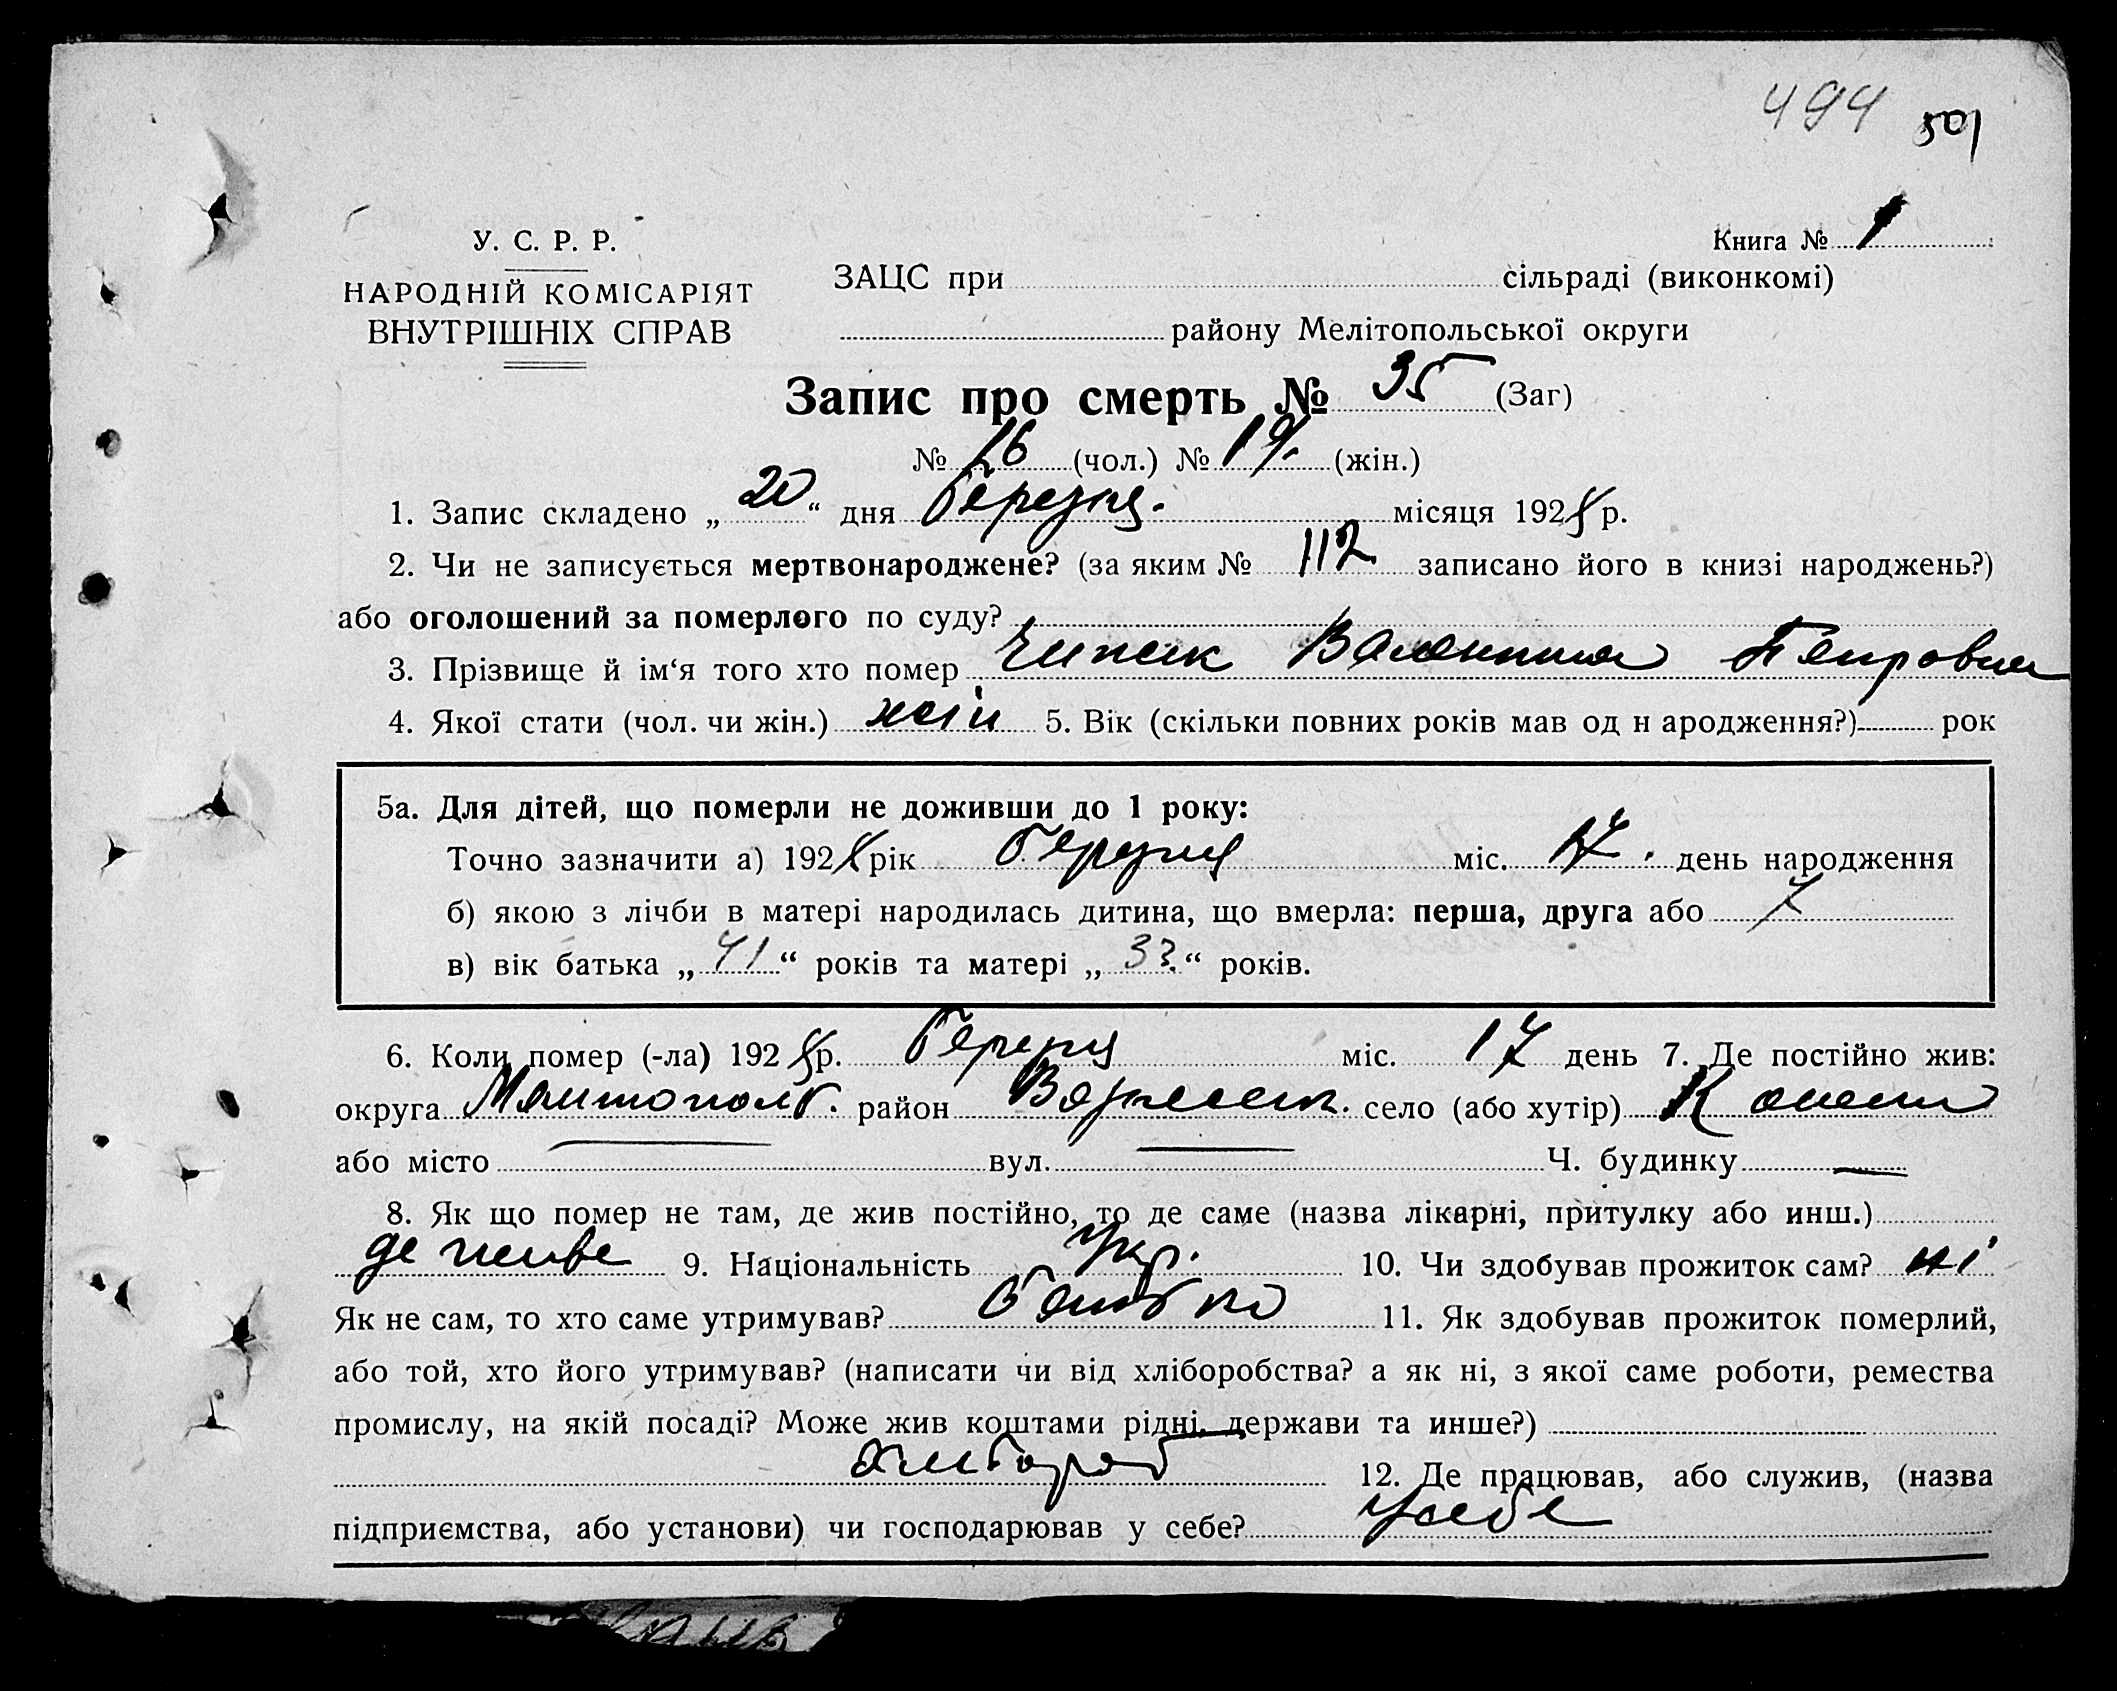 494 501
У. С. Р. Р.
Книга № 1
НАРОДНІЙ КОМІСАРІЯТ
ВНУТРІШНІХ СПРАВ
ЗАЦС при сільраді (виконкомі)
району Мелітопольської округи
Запис про смерть № 35 (Заг)
№ 16 (чол.) № 19. (жін.)
1. Запис складено „20“ дня березня. місяця 1928 р.
2. Чи не записується мертвонароджене? (за яким № 112 записано його в книзі народжень?)
або оголошений за померлого по суду?
3. Прізвище й ім‘я того хто помер Валентина Петровна
4. Якої стати (чол. чи жін.) жін 5. Вік (скільки повних років мав од н ародження?) рок
5а. Для дітей, що померли не доживши до 1 року:
Точно зазначити а) 1928 рік березня міс. 17. день народження
б) якою з лічби в матері народилась дитина, що вмерла: перша, друга або
в) вік батька „41“ років та матері „33.“ років.
6. Коли помер (-ла) 1928 р. березня міс. 17 день 7. Де постійно жив:
округа Мелитополь. район село (або хутір)
або місто — вул. — Ч. будинку —
8. Як що помер не там, де жив постійно, то де саме (назва лікарні, притулку або инш.)
де живе 9. Національність Укр. 10. Чи здобував прожиток сам? ні
Як не сам, то хто саме утримував? батько 11. Як здобував прожиток померлий,
або той, хто його утримував? (написати чи від хліборобства? а як ні, з якої саме роботи, ремества
промислу, на якій посаді? Може жив коштами рідні, держави та инше?)
хлибороб 12. Де працював, або служив, (назва
підприємства, або установи) чи господарював у себе? у себе